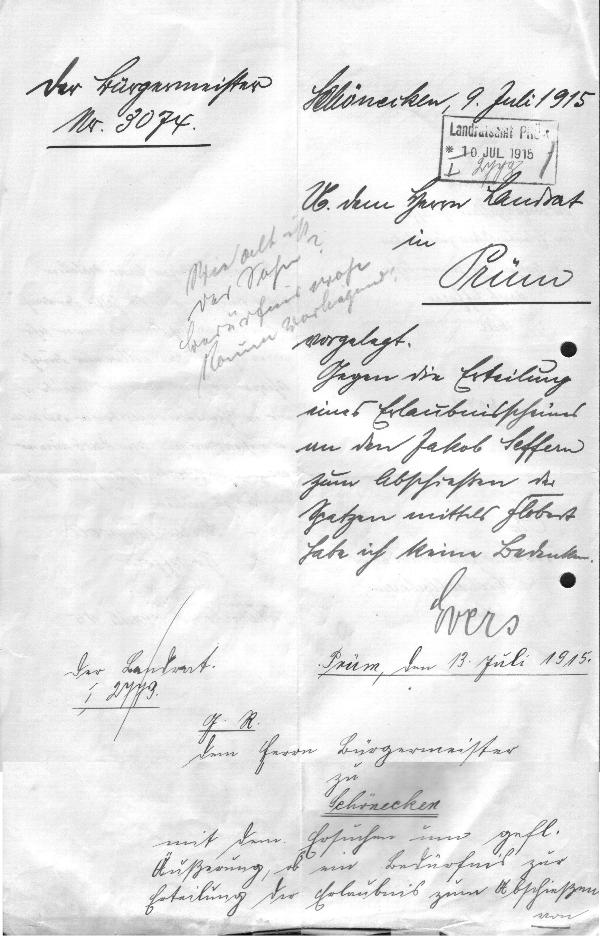 Der Bürgermeister
Nr. 3074.
Schönecken, 9. Juli 1915
Landratsamt Prüm
* 10. JUL 1915
I
U. dem Herrn Landrat
in
Prüm
Wie alt ist
der Sohn?
Bedürfnis wohl
kaum vorliegend!
vorgelegt.
Gegen die Erteilung
eines Erlaubnisscheines
an den Jakob Seffern
zum Abschießen der
Spatzen mittels Flobert
habe ich keine Bedenken.
Evers
Der Landrat.
Prüm, den 13. Juli 1915.
G. R.
dem Herrn Bürgermeister
zu
Schönecken
mit dem Ersuchen um gefl.
Äußerung, ob ein Bedürfnis zur
Erteilung der Erlaubnis zum Abschießen
von